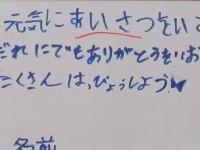 元気にあいさつをい
だれにでもありがとうをいお
たくさんはっぴょうしよう
名前